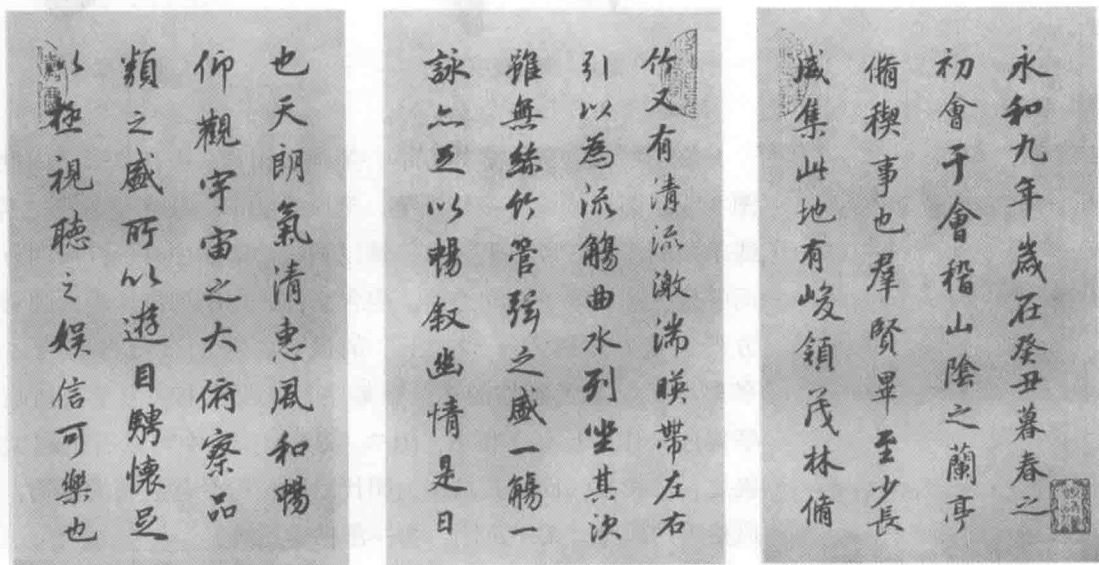 永和九年歲在癸丑暮春之
初會于會稽山陰之蘭亭
脩稧事也羣賢畢至少長
咸集此地有峻領茂林脩
竹又有清流激湍暎帶左右
引以為流觴曲水列坐其次
雖無絲竹管弦之盛一觴一
詠亦足以暢叙幽情是日
也天朗氣清惠風和暢
仰觀宇宙之大俯察品
類之盛所以遊目騁懷足
以極視聽之娛信可樂也